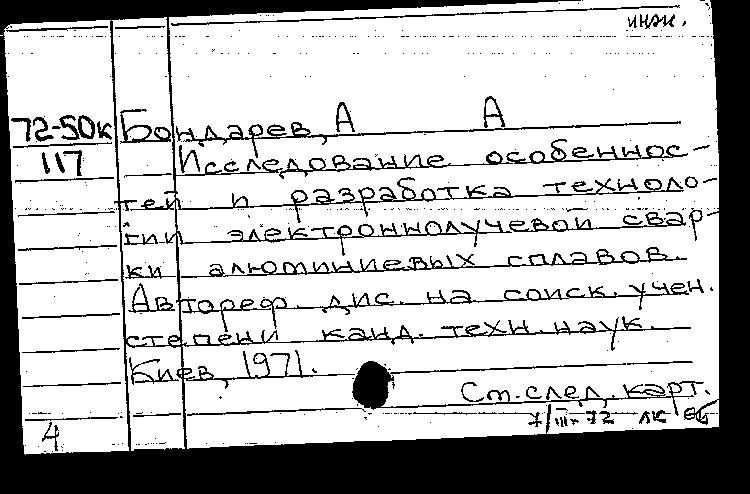 инж.
72-50к Бондарев, А А
117 Исследование особеннос-
тей и разработка техноло-
гии электроннолучевой свар-
ки алюминиевых сплавов.
Автореф. дис. на соиск. учен.
степени канд. техн. наук.
Киев, 1971.
См. след. карт.
7/III-72 лк
4